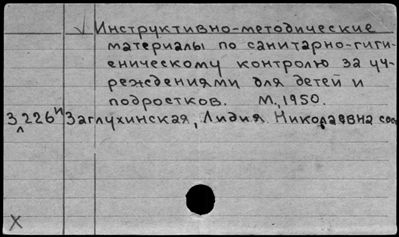 √ Инструктивно-методические
материалы по санитарно-гиги-
еническому контролю за уч-
реждениями для детей и
подростков. М., 1950.
3226и Заглухинская, Лидия Николаевна сос
X